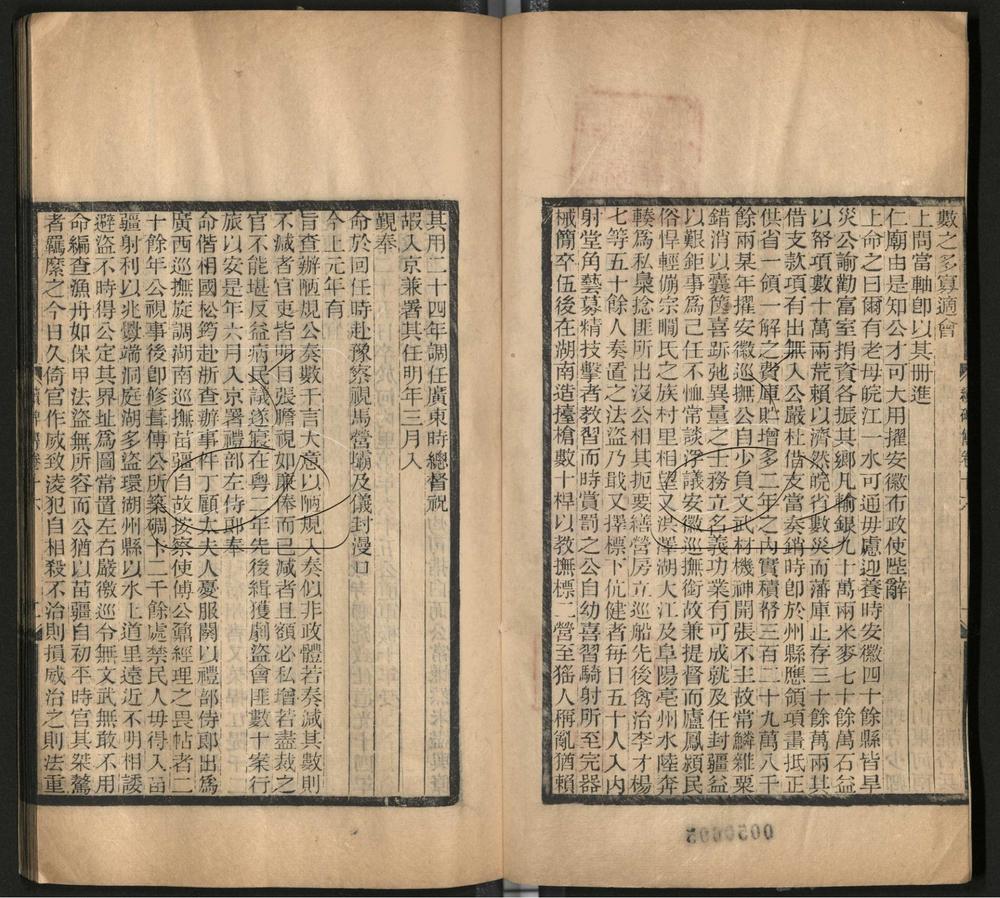 數之多寡適會
上問當軸卽以其冊進
仁廟由是知公才可大用擢安徽布政使陛辭
上命之曰爾有老母皖江一水可通毋慮迎養時安徽四十餘縣皆旱
災公諭勸富室捐資各振其鄉凡輸銀九十萬兩米麥七十餘萬石益
以帑項數十萬兩荒賴以濟然皖省數災而藩庫止存三十餘萬兩其
借支款項有出無入公嚴杜借支當奏銷時卽於州縣應領項畫抵正
供省一領一解之費庫貯增多二年之內實積帑三百二十九萬八千
餘兩某年擢安徽巡撫公自少負文武材機神開張不主故常鱗雜栗
錯消以囊篋喜跅弛異量之士務立名義功業有可成就及任封疆益
以艱鉅事爲己任不恤常談浮議安徽巡撫銜故兼提督而廬鳳潁民
俗悍輕傰宗瞷氏之族村里相望又洪澤湖大江及阜陽亳州水陸奔
輳爲私梟捻匪所出沒公相其扼要繕營房立巡船先後禽治李才楊
七等五十餘人奏置之法盜乃戢又擇標下伉健者每日五十人入內
射堂角藝募精技擊者教習而時賞罰之公自幼喜習騎射所至完器
械簡卒伍後在湖南造擡槍數十桿以教撫標二營至猺人稱亂猶賴
其用二十四年調任廣東時總督祝
嘏入京兼署其任明年三月入
覲奉
命於回任時赴豫察視馬營壩及儀封漫口
今上元年有
旨查辦陋規公奏數千言大意以陋規入奏似非政體若奏減其數則
不減者官吏皆明目張膽視如廉俸而已減者且額必私增若盡裁之
官不能堪反益病民議遂寢在粵二年先後緝獲劇盜會匪數十案行
旅以安是年六月入京署禮部左侍郎奉
命偕相國松筠赴浙查辦事件丁顧太夫人憂服闋以禮部侍郎出爲
廣西巡撫旋調湖南巡撫苗疆自故按察使傅公鼐經理之畏帖者二
十餘年公視事後卽修葺傅公所築碉卡二千餘處禁民人毋得入苗
疆射利以兆釁端洞庭湖多盜環湖州縣以水上道里遠近不明相諉
避盜不時得公定其界址爲圖常置左右嚴徼巡令無文武無敢不用
命編查漁舟如保甲法盜無所容而公猶以苗疆自初平時官其桀驁
者羈縻之今日久倚官作威致淩犯自相殺不治則損威治之則法重